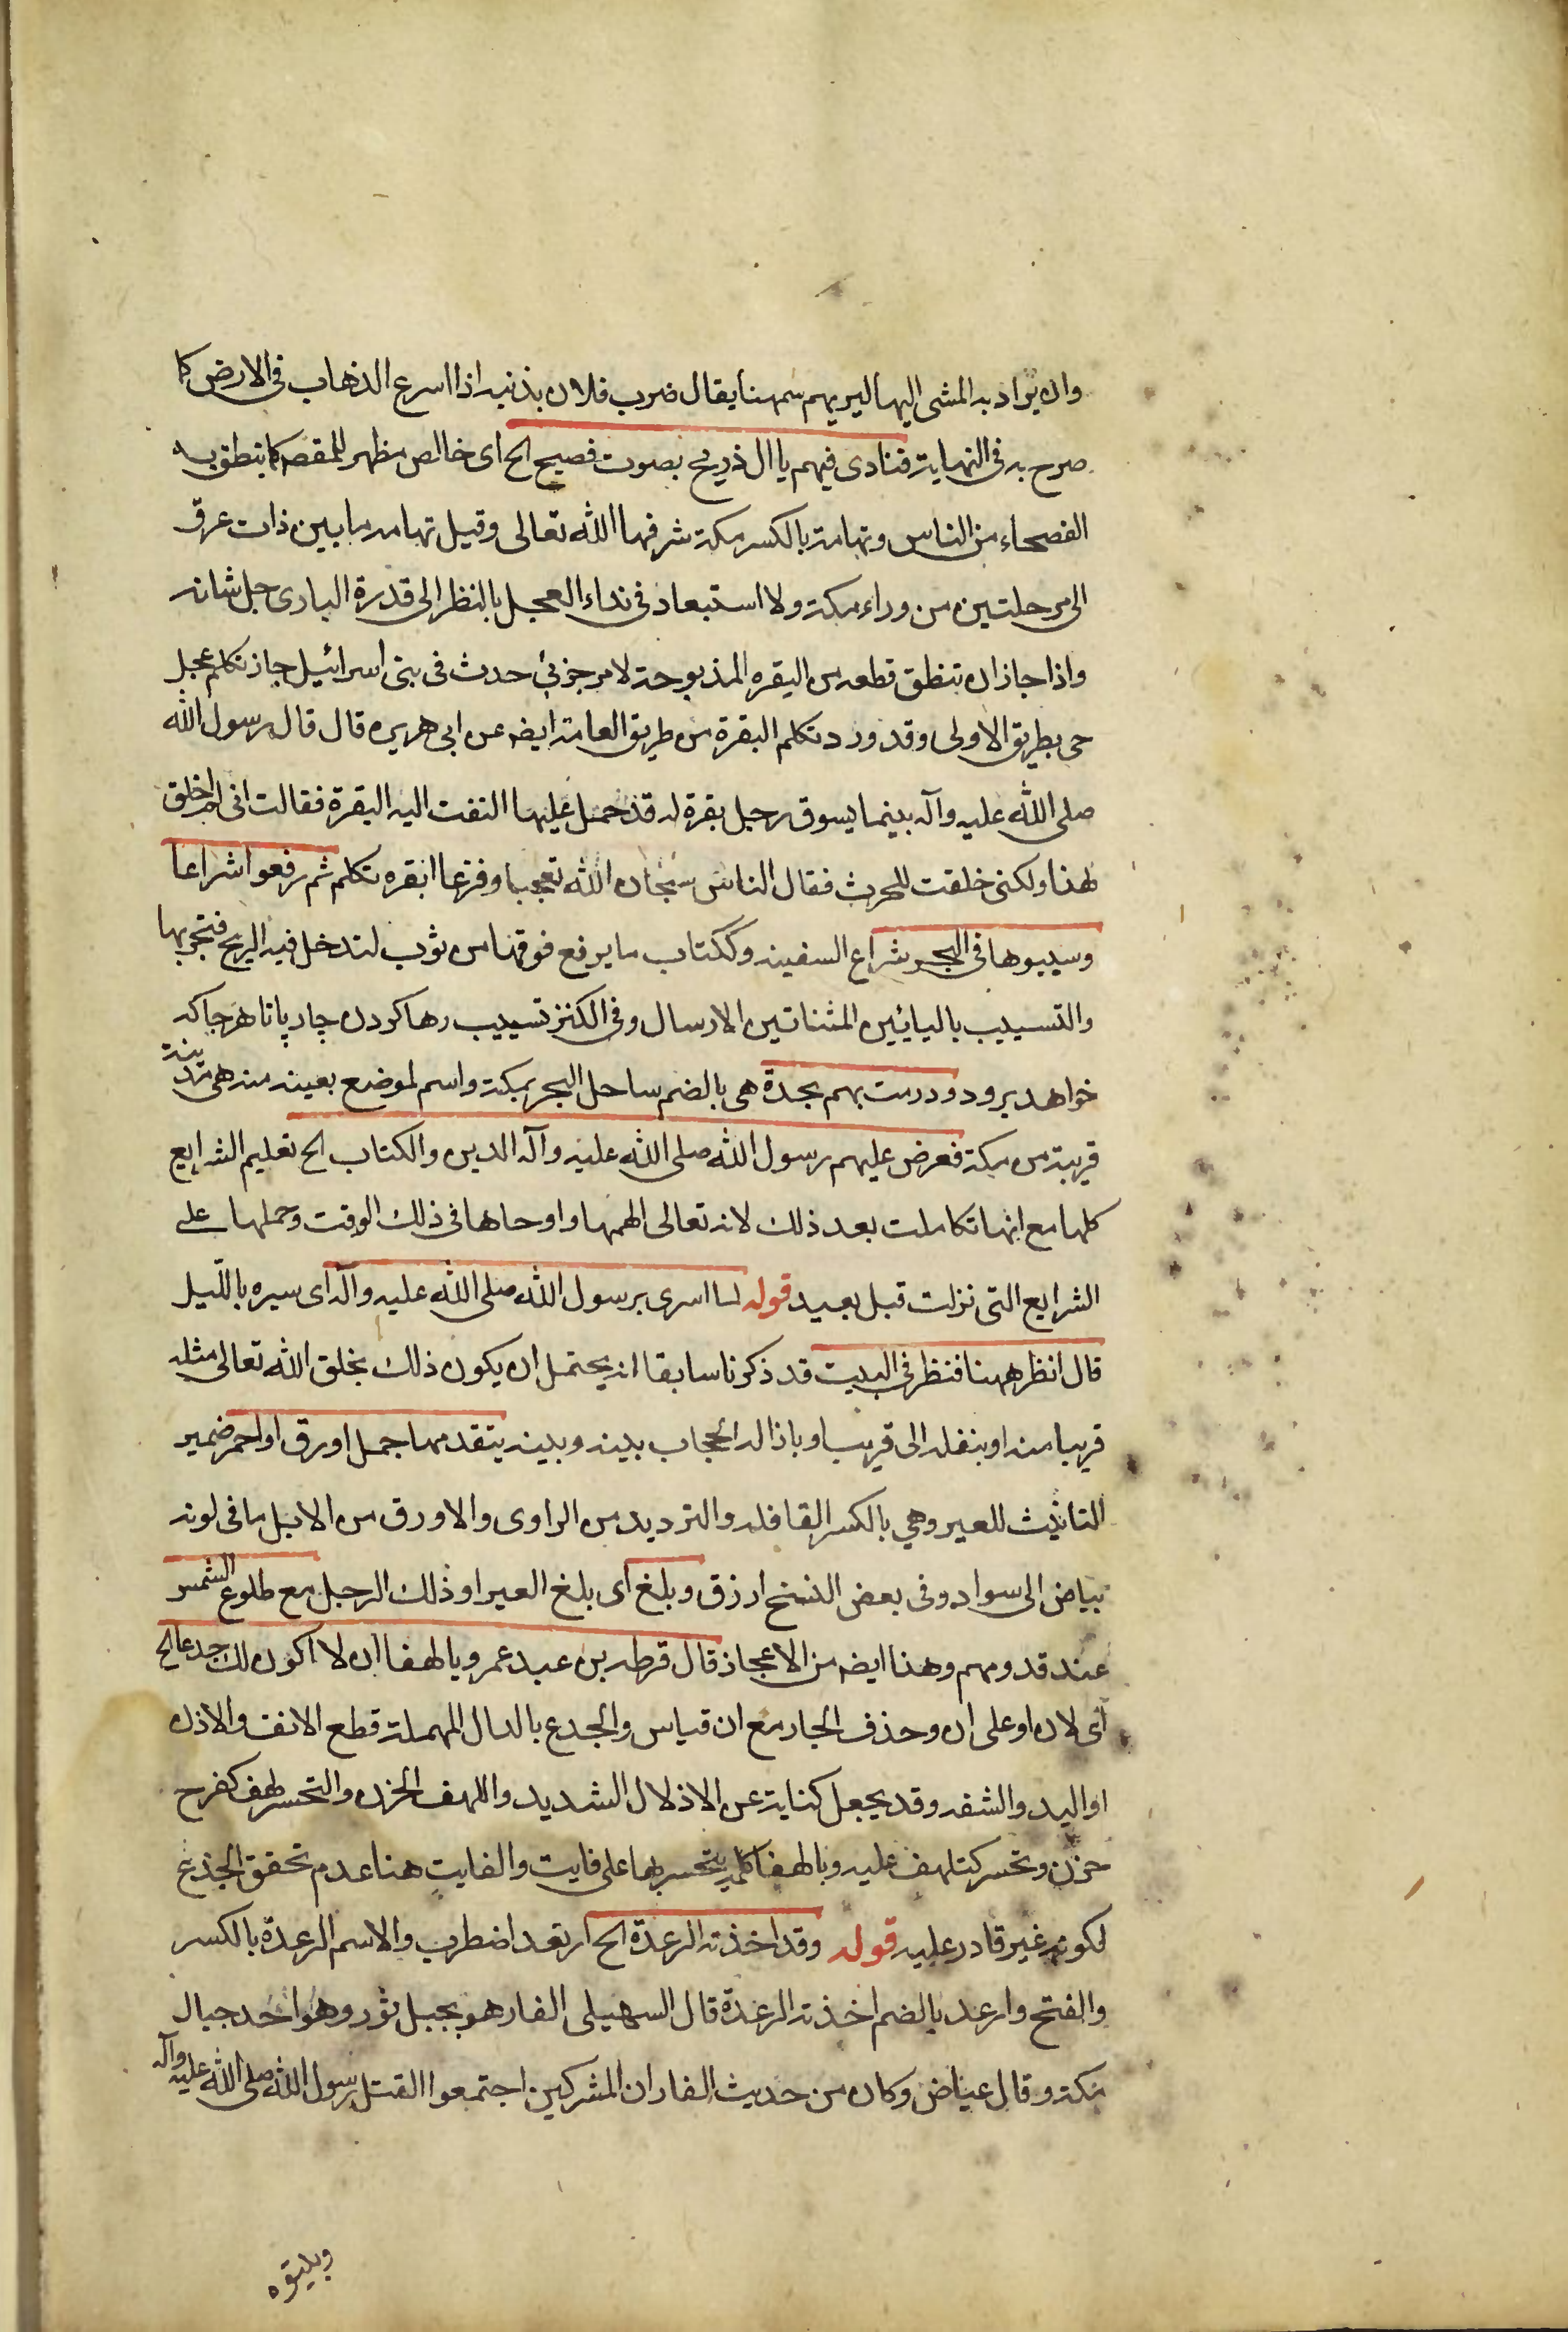 وان يراد به المشى اليها ليريهم سمهنا يقال ضرب فلان بذنبه اذا اسرع الذهاب فى الارض كما
صرح به فى النهاية فنادى فيهم يا ال ذريح بصوت فصيح الخ اى خالص مظهر للمقصد كما ينطق به
الفصحاء من الناس وتهامة بالكسر مكة شرفها الله تعالى وقيل تهامه ما بين ذات عرق
الى مرحلتين من وراء مكة ولا استبعاد فى نداء العجل بالنظر الى قدرة البارى جل شانه
واذا جاز ان تنطق قطعه من البقره المذبوحة لامر جزئى حدث فى بنى اسرائيل جاز تكلم عجل
حى بطريق الاولى وقد ورد تكلم البقرة من طريق العامة ايضه عن ابى هريره قال قال رسول الله
صلى الله عليه وآله بينما يسوق رجل بقرة له قد حمل عليها التفت اليه البقرة فقالت انى لم اخلق
لهذا ولكنى خلقت للحرث فقال الناس سبحان الله تعجبا وفزعا ابقره تكلم ثم رفعوا شراعا
وسيبوها فى البحر شراع السفينه وككتاب ما يرفع فوقها من ثوب لتدخل فيه الريح فتجريها
والتسييب باليائين المثناتين الارسال وفى الكنز تسييب رها كردن چارپا تا هر جا كه
خواهد برود ودرمت بهم بجدة هى بالضم ساحل البحر بمكة واسم لموضع بعينه منه هى مدينة
قريبة من مكة فعرض عليهم رسول الله صلى الله عليه وآله الدين والكتاب الخ تعليم الشرايع
كلها مع انها تكاملت بعد ذلك لانه تعالى الهمها واوحاها فى ذلك الوقت وحملها على
الشرايع التى نزلت قبل بعيد قوله لما اسرى برسول الله صلى الله عليه وآله اى سيره بالليل
قال انظر ههنا فنظر فى البيت قد ذكرنا سابقا انه يحتمل ان يكون ذلك بخلق الله تعالى مثله
قريبا منه او بنقله الى قريب او باذالة الحجاب بينه وبينه يتقدمها جمل اورق او احمر ضمير
التانيث للعير وهى بالكسر القافله والترديد من الراوى والاورق من الابل ما فى لونه
بياض الى سواد وفى بعض النسخ ازرق وبلغ اى بلغ العير او ذلك الرجل مع طلوع الشمس
عند قدومهم وهذا ايضه من الاعجاز قال قرطه بن عبد عمرو يا لهفا ان لا اكون لك جدعا الخ
اى لان او على ان وحذف الجار مع ان قياس والجدع بالدال المهملة قطع الانف والاذن
او اليد والشفه وقد يجعل كناية عن الاذلال الشديد واللهف الحزن والتحسر لهف كفرح
حزن وتحسر كتلهف عليه ويا لهفا كلمة يتحسر بها على فايت والفايت هنا عدم تحقق الجذع
لكونه غير قادر عليه قوله وقد اخذته الرعدة الخ ارتعد اضطرب والاسم الرعدة بالكسر
والفتح وارعد بالضم اخذته الرعدة قال السهيلى الغار هو بجبل ثور وهو احد جبال
مكة وقال عياض وكان من حديث الغار ان المشركين اجتمعوا لقتل رسول الله صلى الله عليه وآله
وبليتوه